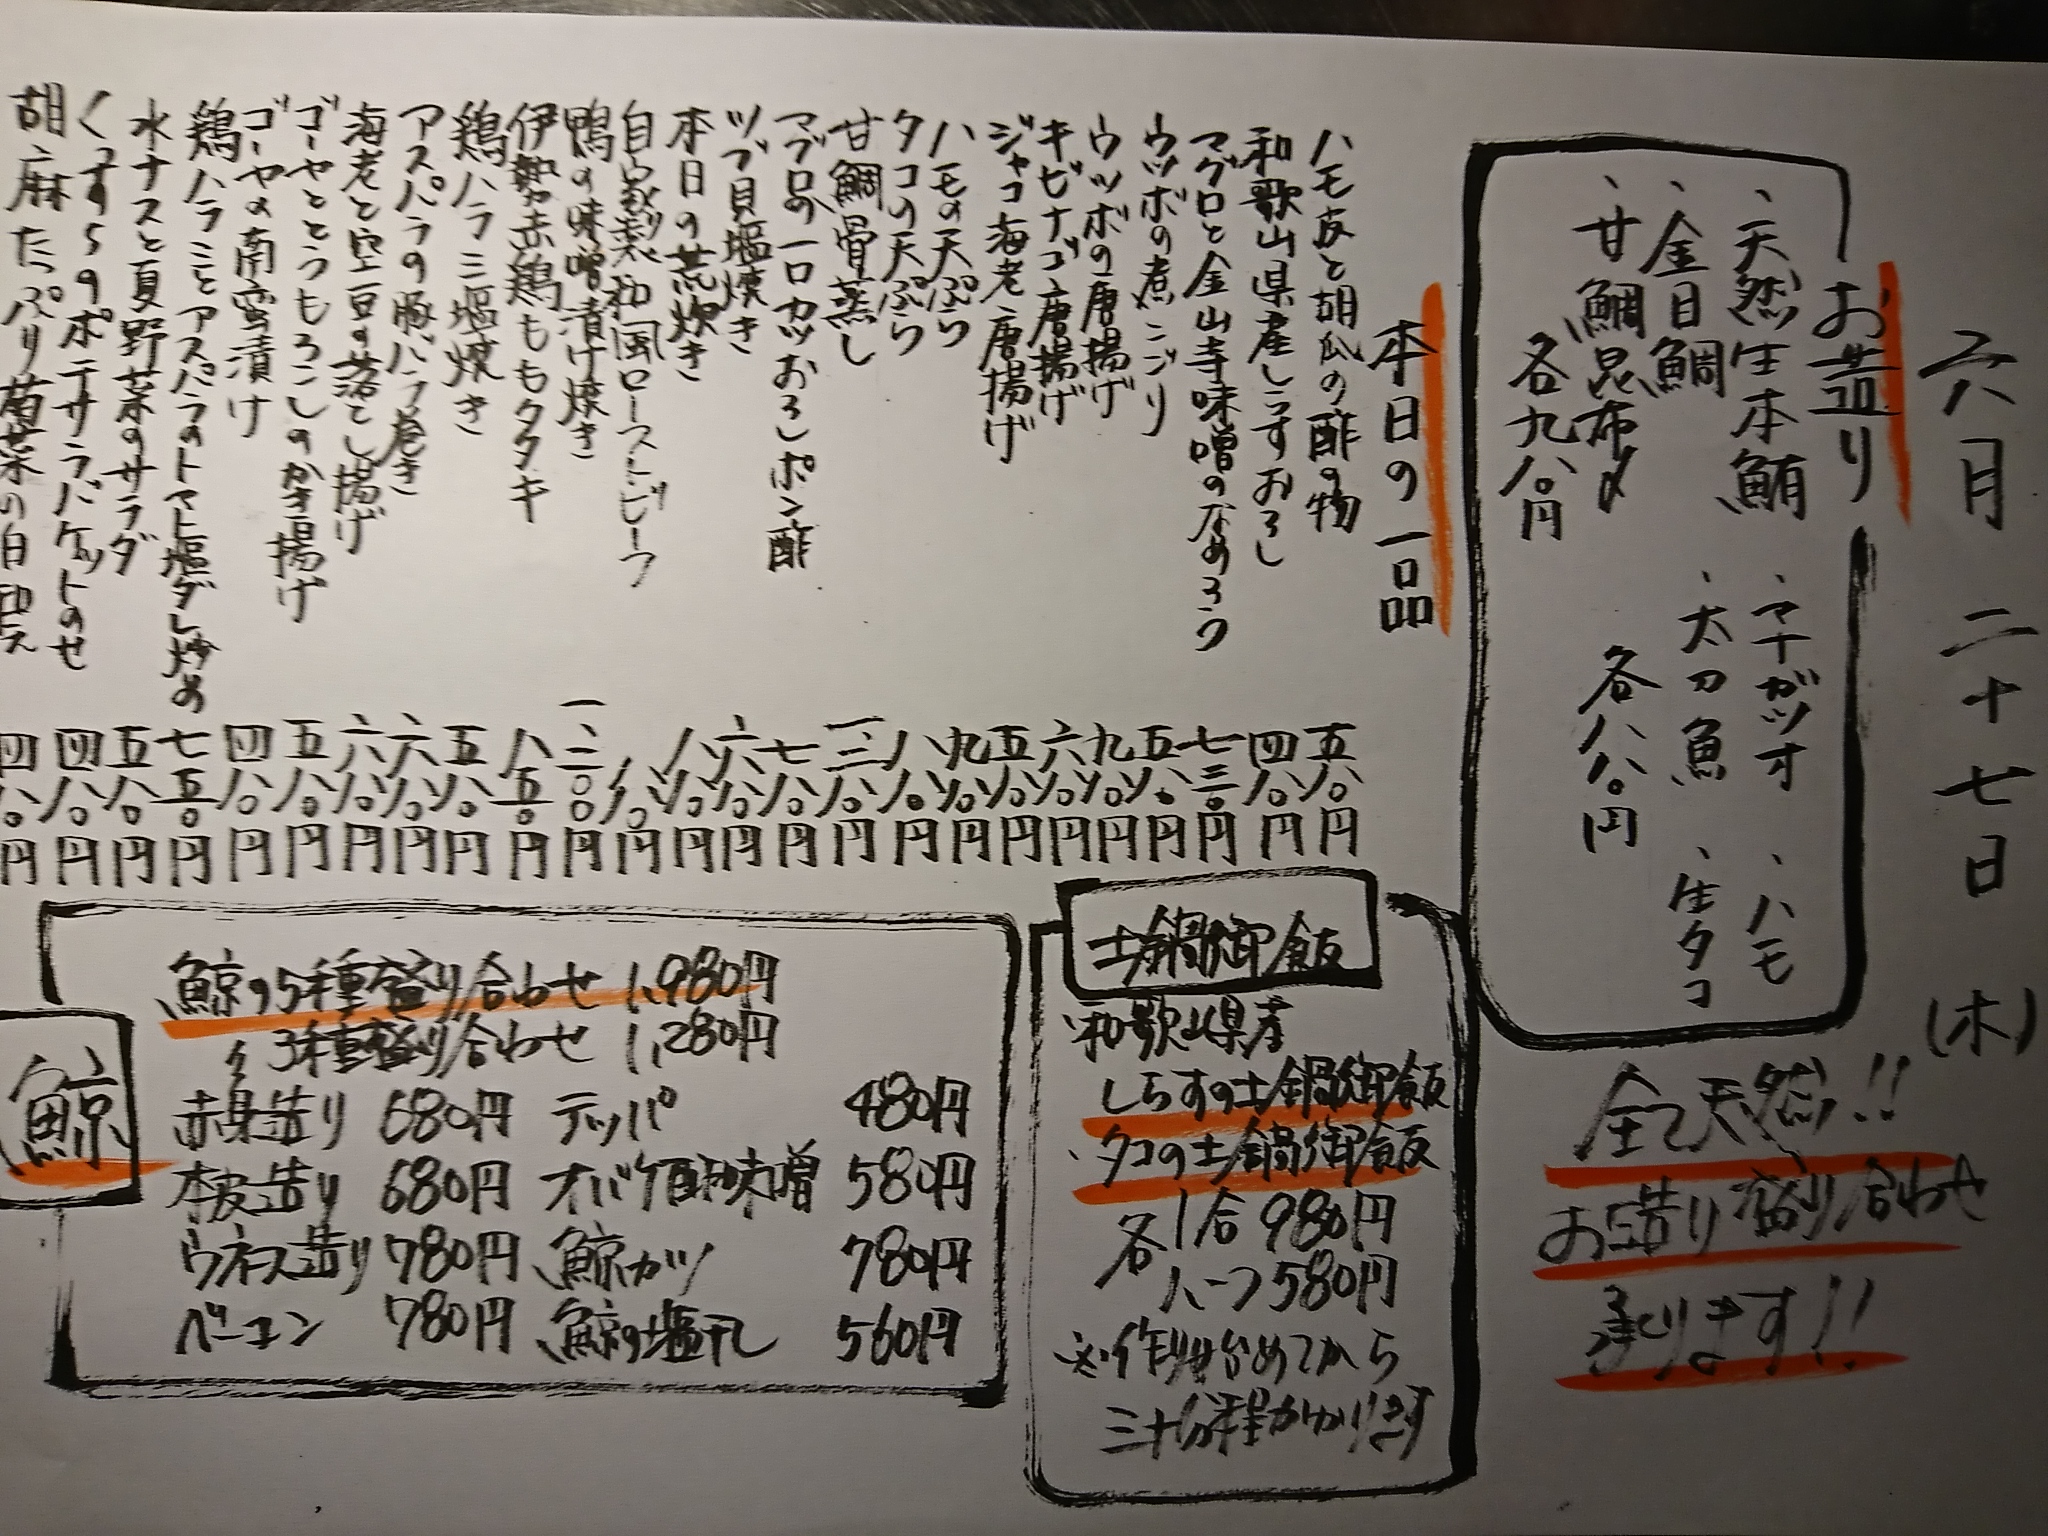 六月二十七日(木)
お造り
、天然生本鮪
、マナガツオ
、ハモ
、金目鯛
、太刀魚
、生タコ
、甘鯛昆布〆
各九八〇円
各八八〇円
全て天然!!
お造り盛り合わせ
承ります!!
本日の一品
ハモ皮と胡瓜の酢の物 五八〇円
和歌山県産しらすおろし 四八〇円
マグロと金山寺味噌のなめろう 七三〇円
ウツボの煮こごり 五八〇円
ウツボの唐揚げ 九八〇円
キビナゴ唐揚げ 六八〇円
ジャコ海老唐揚げ 五八〇円
ハモの天ぷら 九八〇円
タコの天ぷら 八八〇円
甘鯛骨蒸し
マグロの一口カツおろしポン酢 七八〇円
ツブ貝塩焼き 六八〇円
本日の荒炊き 八八〇円
自家製和風ローストビーフ 八八〇円
鴨の味噌漬け焼き 一二〇〇円
伊勢赤鶏ももタタキ 八五〇円
鶏ハラミ塩焼き 五八〇円
アスパラの豚バラ巻き 六八〇円
海老と空豆の落とし揚げ 六八〇円
ゴーヤととうもろこしのかき揚げ 五八〇円
ゴーヤの南蛮漬け 四八〇円
鶏ハラミとアスパラのトマト塩ダレ炒め 七五〇円
水ナスと夏野菜のサラダ 五八〇円
くずし豆腐
ポテサラバケットのせ 四八〇円
胡麻たっぷり菊菜の白和え 四八〇円
土鍋御飯
、和歌山県産
しらすの土鍋御飯
、タコの土鍋御飯
各1合980円
ハーフ580円
※作り始めてから
三十分程かかります
鯨
鯨の5種盛り合わせ 1,980円
〃 3種盛り合わせ 1,280円
赤身造り 680円 テッパ 480円
本皮造り 680円 オバケ酢味噌 580円
ウネス造り 780円 鯨カツ 780円
ベーコン 780円 鯨の塩干し 560円